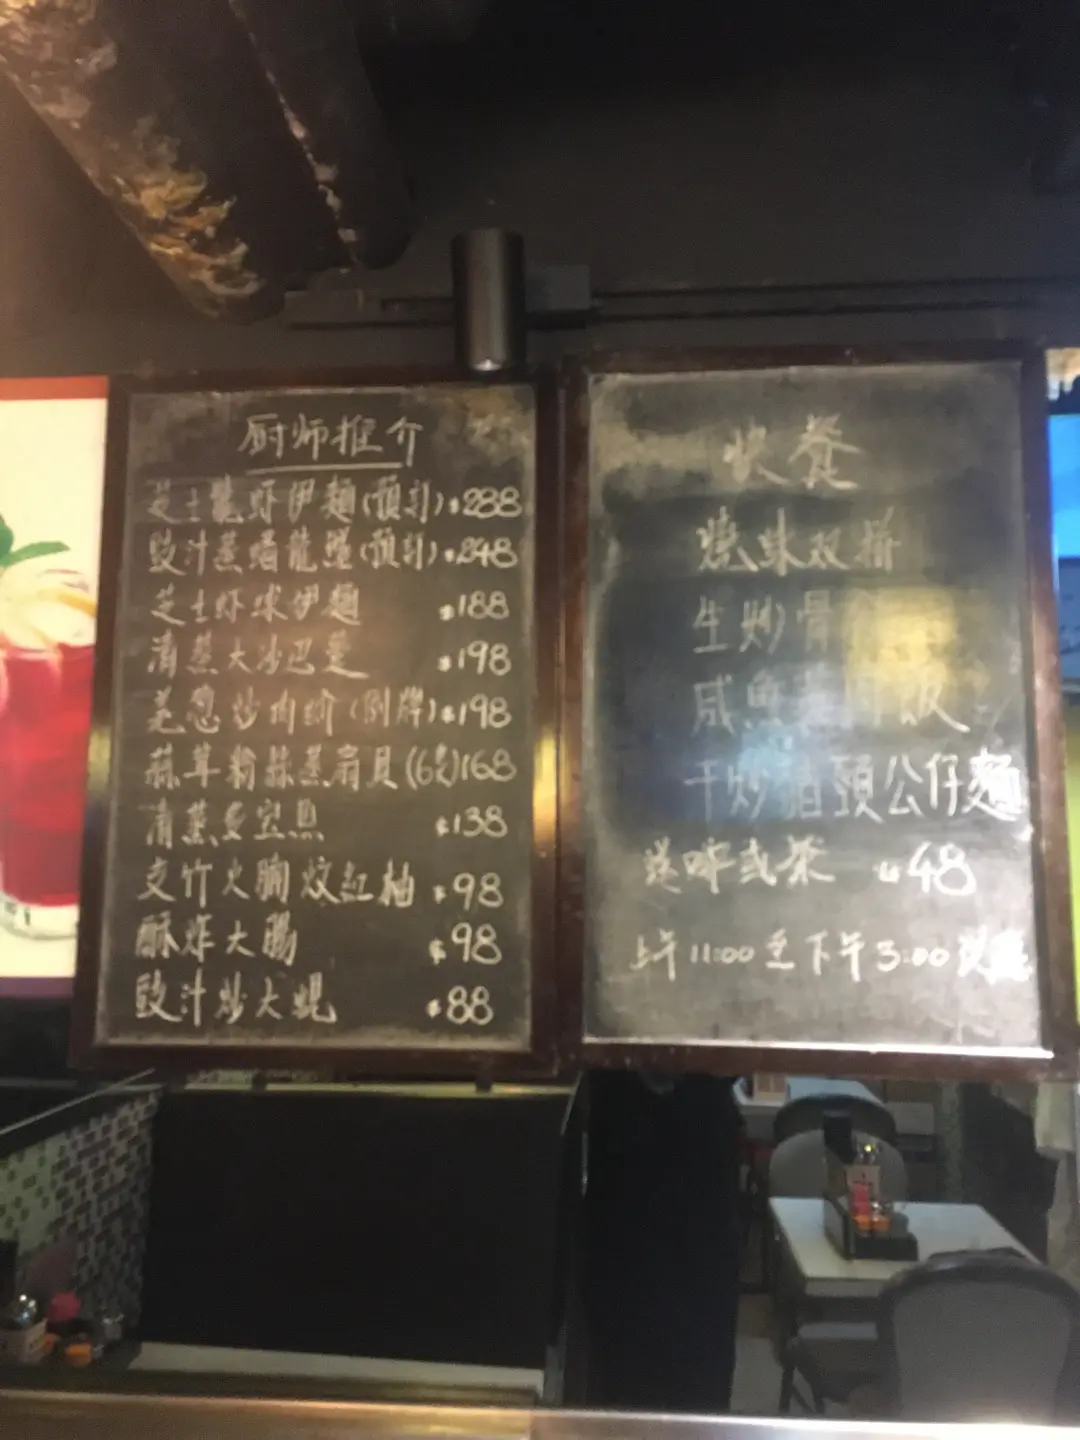 厨师推介
芝士龍虾伊麵(預訂)$288
豉汁蒸蟠龍鱔(預訂)$248
芝士虾球伊麵 $188
清蒸大沙巴 $198
姜葱炒肉 $198
蒜茸粉絲蒸扇貝(6隻)168
清蒸 $138
支竹火腩炆 $98
酥炸大腸 $98
豉汁炒大蜆 $88
快餐
燒味双拼
生炒骨
咸魚 飯
干炒 頭公仔麵
送啡或茶 $48
上午11:00至下午3:00